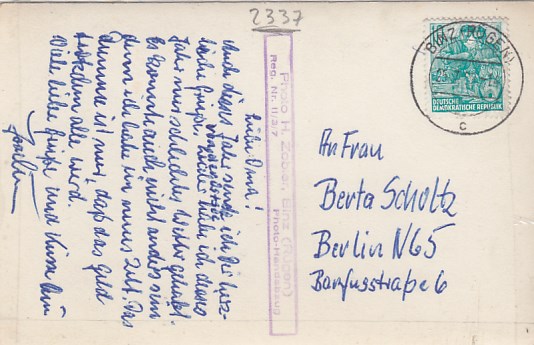 2337
Liebe Oma!
Auch dieses Jahr sende ich Dir herz-
liche Grüße.
habe ich dieses
Jahr nur schlechtes Wetter gehabt.
Es kommt auch nicht anders sein
denn ich habe ein neues Zelt. Das
dumme ist nur, daß das Geld
alle wird.
Viele liebe Grüße und Küsse Dein
Photo H. Zober, Binz (Rügen)
Reg. Nr. II/3/7
Photo-Handabzug
BINZ (RÜGEN)
c
DEUTSCHE
DEMOKRATISCHE REPUBLIK
An Frau
Berta Scholtz
Berlin N65
Barfusstraße 6